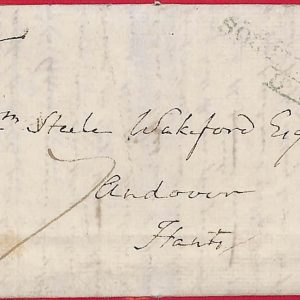 Wm Steele Wakeford Esq
Andover
Hants
7